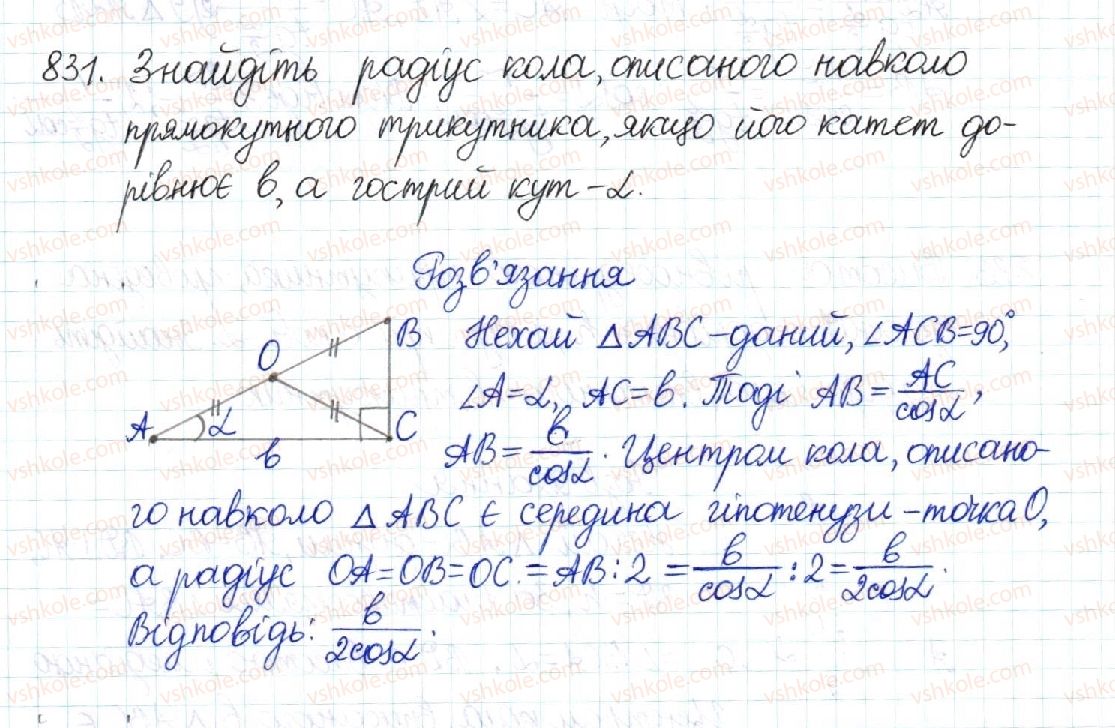 831. Знайдіть радіус кола, описаного навколо
прямокутного трикутника, якщо його катет до-
рівнює b, а гострий кут – α.
Розв'язання
B
O
A
α
C
b
Нехай △ABC – даний, ∠ACB=90°,
∠A=α, AC=b. Тоді AB = AC/cosα,
AB = b/cosα. Центром кола, описано-
го навколо △ABC є середина гіпотенузи – точка O,
а радіус OA=OB=OC.=AB:2 = b/cosα :2 = b/2cosα.
Відповідь: b/2cosα.
vshkole.com